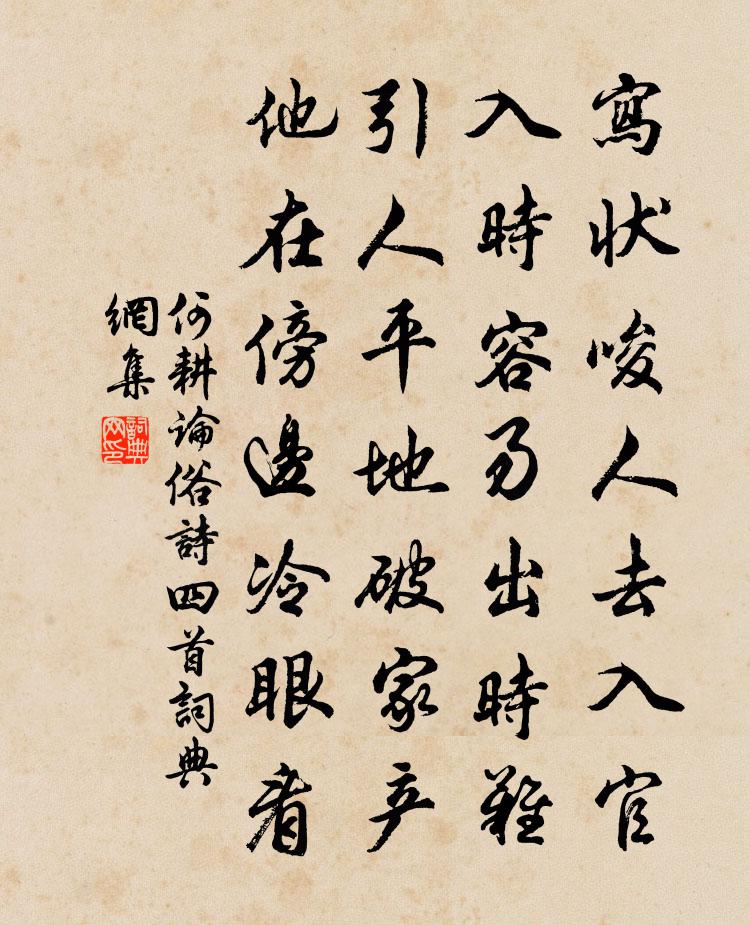 寫状唆人去入官
入時容易出時難
引人平地破家产
他在傍邊冷眼看
何耕論俗詩四首詞典
網集
詞典
网印